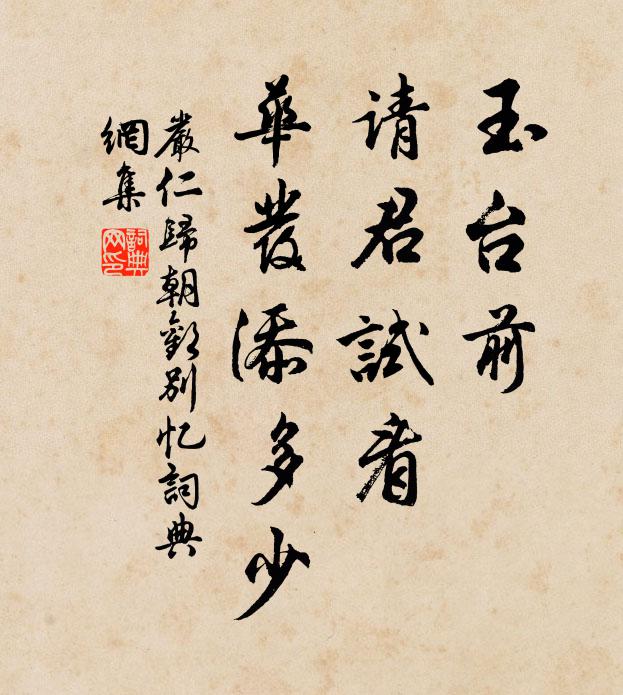 玉台前
请君試看
華發添多少
嚴仁歸朝歡別忆詞典
網集
詞典
网印